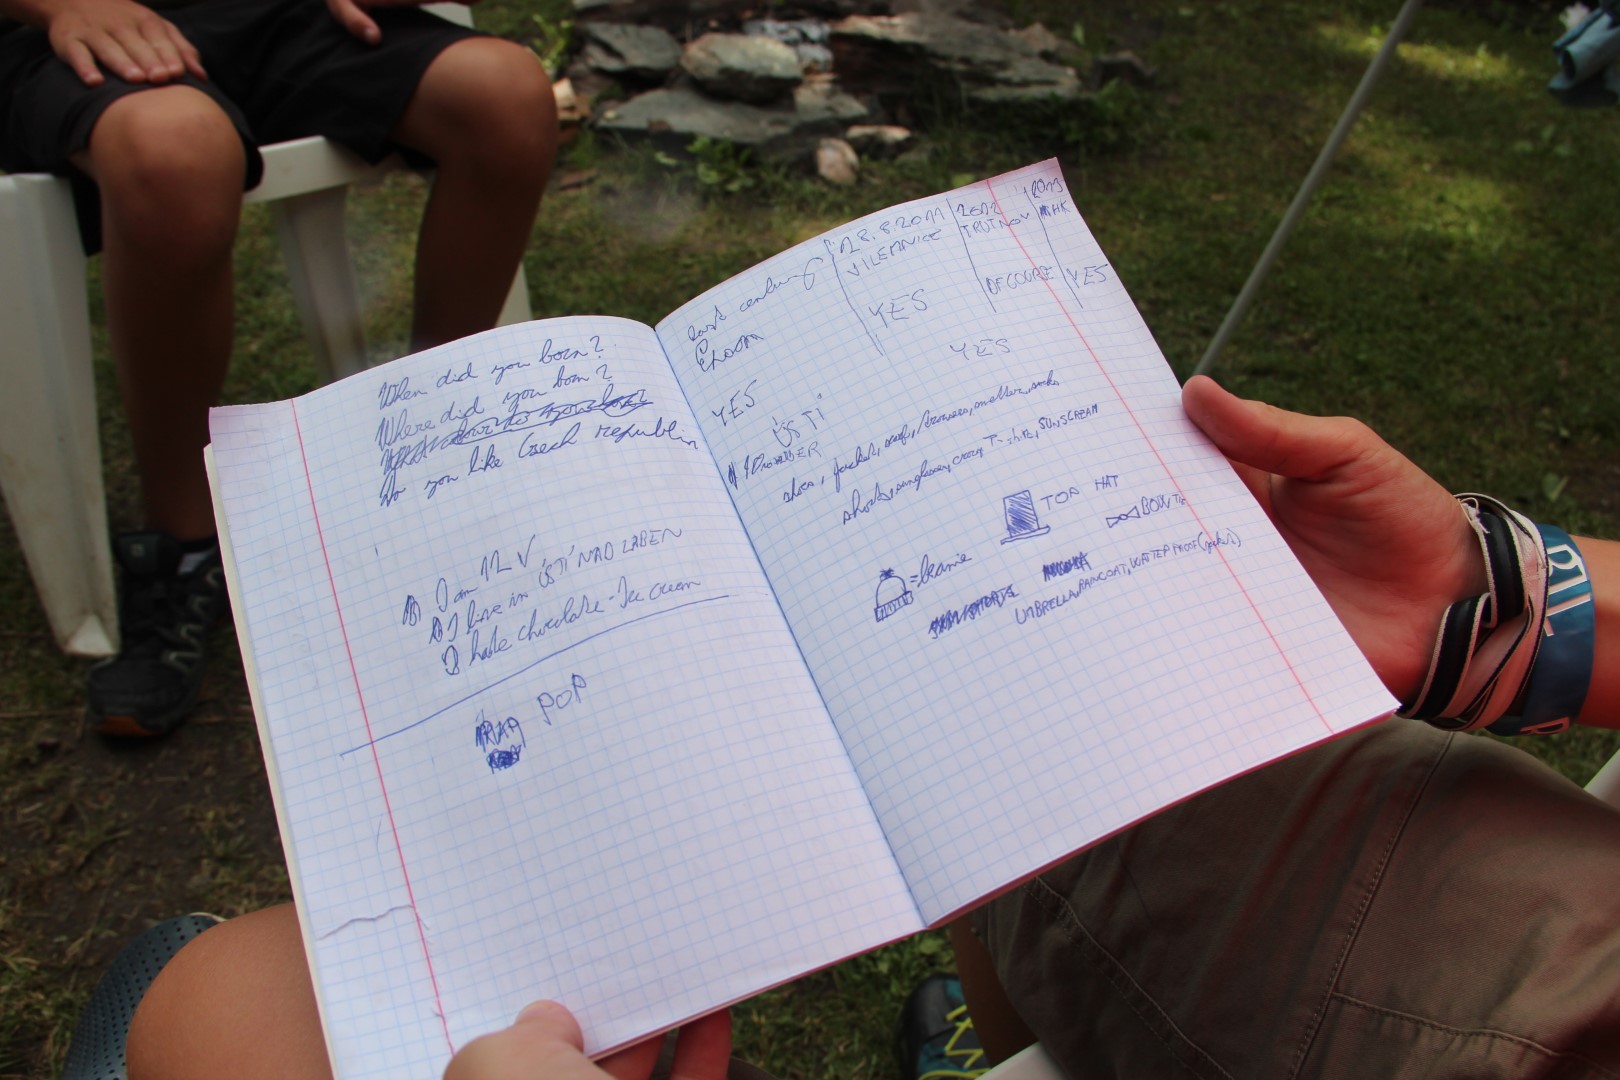 When did you born?
Where did you born?
Do you like Czech republic
I am 12 V
I live in ÚSTÍ NAD LABEN
I hate chocolate - Ice cream
RAP POP
last century
YES
18.8.2011
VILEMNICE
YES
2012
TRUTNOV
OF COURSE
2013
HK
YES
YES
ÚSTÍ
shoes, jacket, scarf, trousers, socks
shorts, sunglasses, crazy T-shirt, SUNSCREAM
TOP HAT
BOW TIE
=beanie
UMBRELLA, RAINCOAT, WATTER PROOF (jacket)